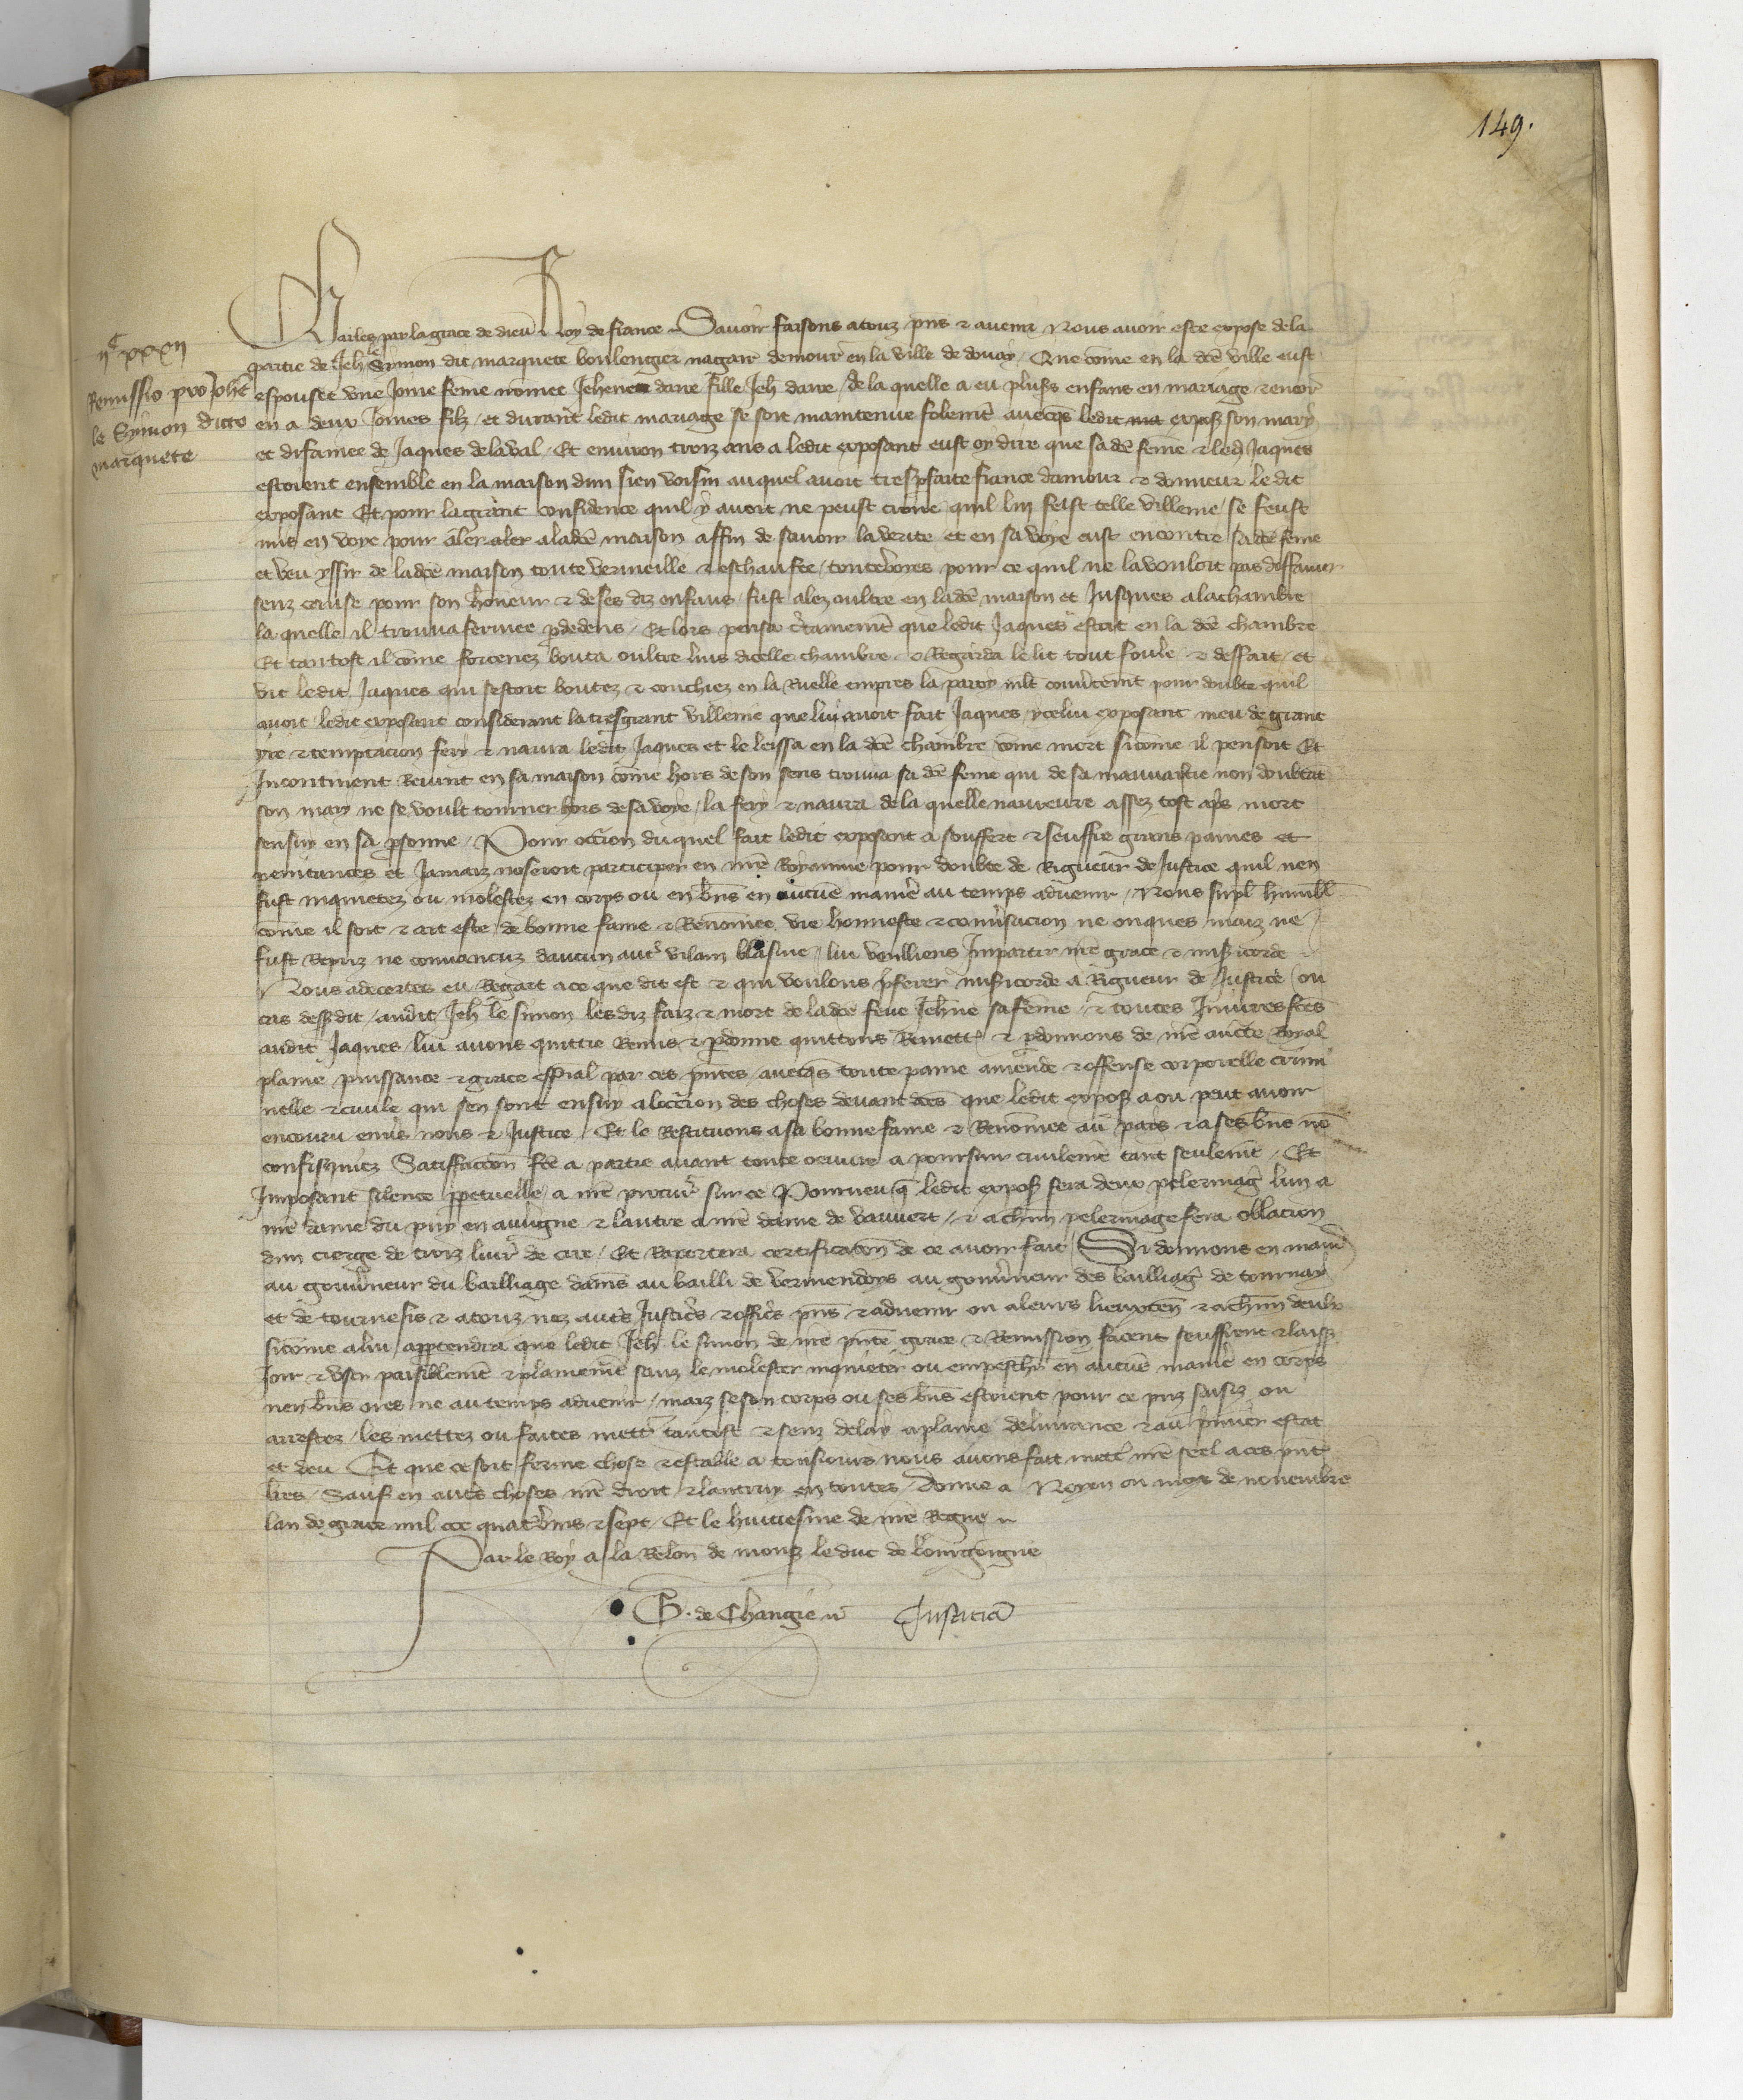 149.
IIc XXXII
Remissio pro Johe
le Symon dicto
marquete
Charles par la grace de dieu Roy de france Savoir faisons a touz pns & avenir Nous avoir este expose de la
partie de Jeh le Symon dit marquete boulengier nagair demour en la ville de douay Que come en la dce ville eust
espousee une Jone feme nomee Jehene dare fille Jeh dare de la quelle a eu plus enfans en mariage & encor
en a deux Jones filz et durant ledit mariage se soit maintenue folemt avecqs ledit expos son mary
et difamee de Jaques delaval Et environ troiz ans a ledit exposant eust oy dire que sa de feme & led Jaques
estoient ensemble en la maison dun sien voisin auquel avoit tresparfaite fiance damour & donneur le dit
exposant Et pour la grant confidence quil y avoit ne peust croire quil lui feist telle villenie se feust
mis en voye pour aler aler a ladce maison affin de savoir la verite et en sa voye eust encontre sa dce feme
et veu yssir de ladce maison toute vermeille & eschaufee toutevoies pour ce quil ne la vouloit pas diffamer
senz cause pour son honeur & de ses diz enfans fust alez oultre en ladce maison et Jusques a la chambre
la quelle il trouva fermee pdedens Et lors pensa certainemt que ledit Jaques estoit en la dce chambre
Et tantost il come forcenez bouta oultre luis dicelle chambre & Regarda le lit tout foule & deffait et
vit ledit Jaques qui sestoit boutez & couchiez en la Ruelle empres la paroy mlt couvertemt pour doubte quil
avoit ledit exposant considerant la tresgrant villenie que lui avoit fait Jaques ycelui exposant meu de grant
yre & temptacion fery & navra ledit Jaques et le leissa en la dce chambre come mort sicome il pensoit Et
Incontinent Revint en sa maison come hors de son sens trouva sa dce feme qui de sa mauvaistie non doubtat
son mary ne se voult tourner hors de sa voye la fery & navra de la quelle navreure assez tost aps mort
sensuy en sa psonne Pour occion duquel fait ledit exposant a souffert & seuffre grans paines et
penitances et Jamaiz noseroit participer en nre Royaume pour doubte de Rigueur de Justice quil nen
fust inquietez ou molestez en corps ou en bns en aucue manie au temps advenir Nous supl humbl
come il soit & ait este de bonne fame & Renomee vie honneste & convsacion ne onques maiz ne
fust Repriz ne convaincuz daucun autre vilain blasme lui veulliens Impartir nre grace & misicorde
Nous adecertes eu Regart a ce que dit est & qui voulons pferer misicorde a Rigueur de Justice ou
cas dessdit audit Jeh le simon les diz faiz & mort de ladce feue Jehne sa feme & toutes Injures fces
audit Jaques lui avons quittie Remis & pdonne quittons Remett & pdonnons de nre aucte Royal
plaine puissance & grace espial par ces pntes avecqs toute paine amende & offense corporelle crimi
nelle & civile qui sen sont ensuy a loccion des choses devant dces que ledit expos a ou peut avoir
encouru envs nous & Justice Et le Restituons a sa bonne fame & Renomee au pais & a ses bns no
confisquiez Satiffaccion fce a partie avant toute oeuvre a poursuir civilemt tant seulemt Et
Imposant silence ppetuelle a nre procur sur ce Pourveu q ledit expos fera deux pelerinag lun a
nre dame du puy en auvgne & lautre a nre dame de vauvert & a chun pelerinage fera oblacion
dun cierge de troiz livr de cire Et Raportera certificaton de ce avoir fait Si donnons en mand
au gouvneur du bailliage damns au bailli de vermendoys au gouvneur des bailliag de tournay
et de tournesis & a touz noz autrs Justicrs & officrs pns & advenir ou a leurs lieuxten & a chun deulx
sicome a lui apptendra que ledit Jeh le simon de nre pnte grace & Remission facent seuffrent & laiss
Joir & user paisiblemt & plainemt sanz le molester inquieter ou empeschr en aucue manie en corps
nen bns ores ne au temps advenir maiz se son corps ou ses bns estoient pour ce priz saisiz ou
arrestez les mettez ou faites mett tantost & senz delay a plaine delivrance & au pmier estat
et deu Et que ce soit ferme chose & estable a tousiours nous avons fait mett nre seel a ces pnt
lres Sauf en autrs choses nre droit & lautruy en toutes Donne a Noyon ou mois de novembre
lan de grace mil ccc quatvins & sept Et le huitiesme de nre Regne
Par le Roy a la Relon de mons le duc de bourgoingne
G. de Changie Justicia